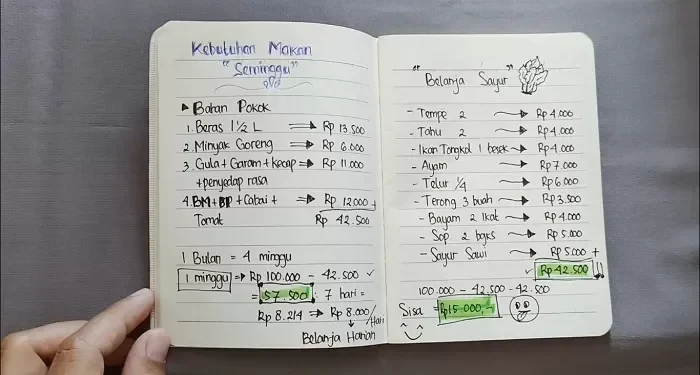 Kebutuhan Makan
"Seminggu"
▸ Bahan Pokok
1. Beras 1 1/2 L ⇒ Rp 13.500
2. Minyak Goreng ⇒ Rp 6.000
3. Gula + Garam + kecap ⇒ Rp 11.000
+penyedap rasa
4. BM + BP + Cabai + ⇒ Rp 12000 +
Tomat Rp 42.500
1 Bulan = 4 minggu
1 minggu ⇒ Rp 100.000 - 42.500 ✓
= 57.500 : 7 hari =
Rp 8.214 ⇒ Rp 8.000/Hari
↓
Belanja Harian
"Belanja Sayur"
- Tempe 2 → Rp 4.000
- Tahu 2 → Rp 4.000
- Ikan Tongkol 1 besek → Rp 4.000
- Ayam → Rp 7.000
- Telur 1/4 → Rp 6.000
- Terong 3 buah → Rp 3.500
- Bayam 2 Ikat → Rp 4.000
- Sop 2 bgks → Rp 5.000
- Sayur Sawi → Rp 5.000 +
✓ Rp 42.500 !!
100.000 - 42.500 - 42.500
Sisa = Rp 15.000,-